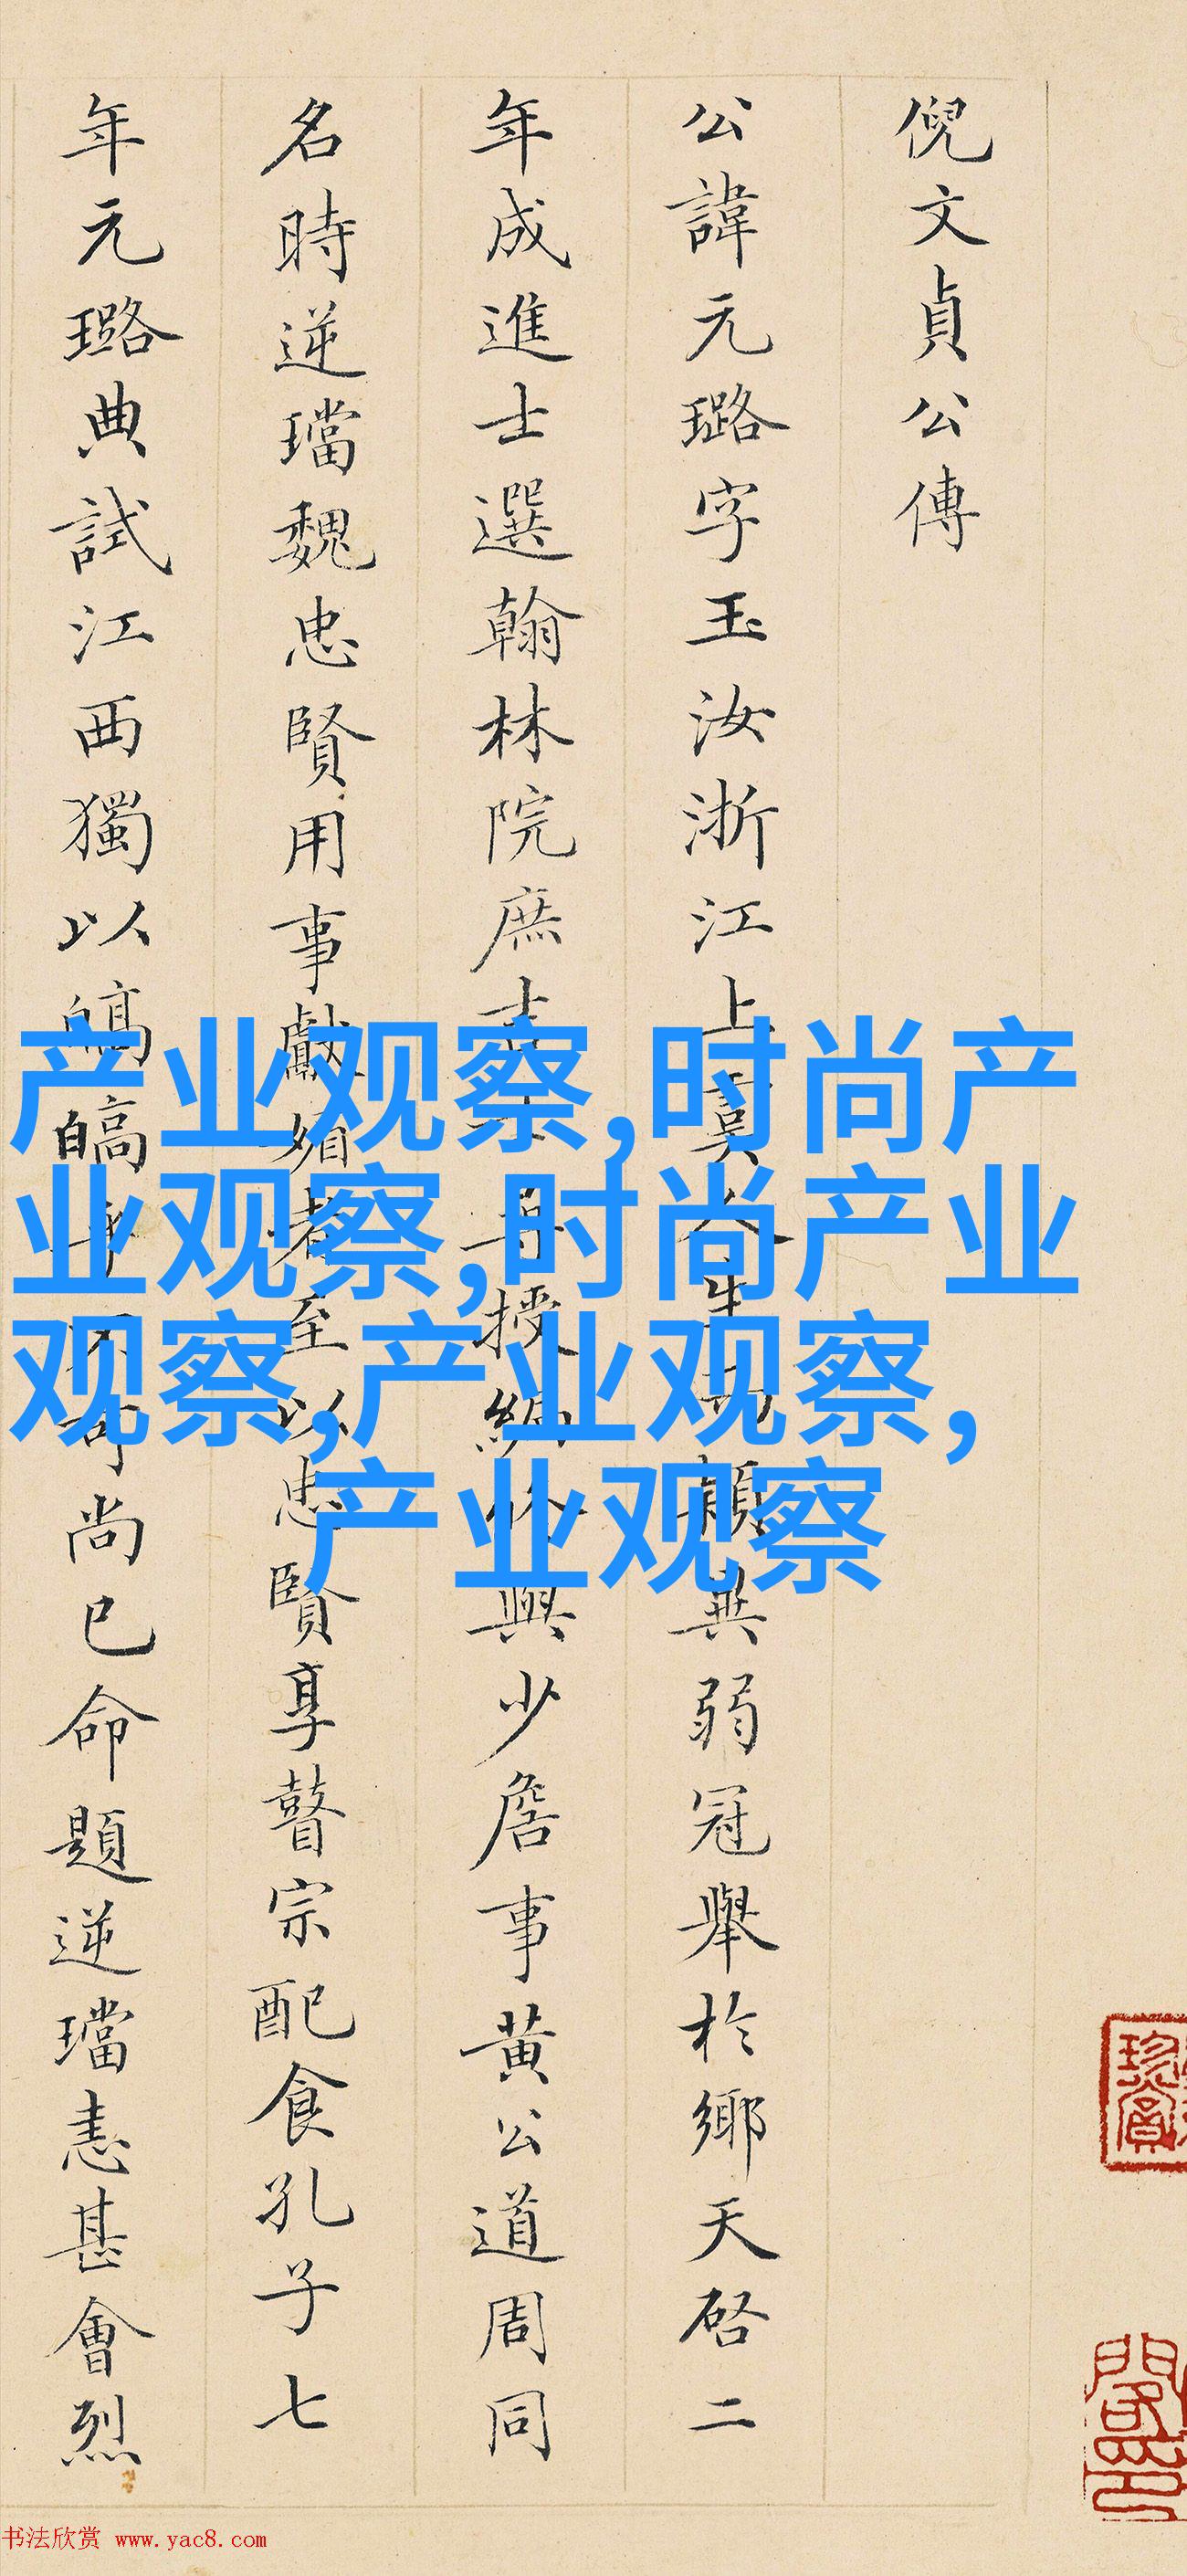 倪文貞公傳
公諱元璐字玉汝浙江上虞人生而穎異弱冠舉於鄉天啓二
年成進士選翰林院庶吉士授編修與少詹事黃公道周同
名時逆璫魏忠賢用事獻媚者至以忠賢享瞽宗配食孔子七
年元璐典試江西獨以皜皜乎不可尚已命題逆璫恚甚會烈
产业观察,时尚产
业观察,时尚产业
观察,产业观察,
产业观察
书法欣赏 www.yac8.com